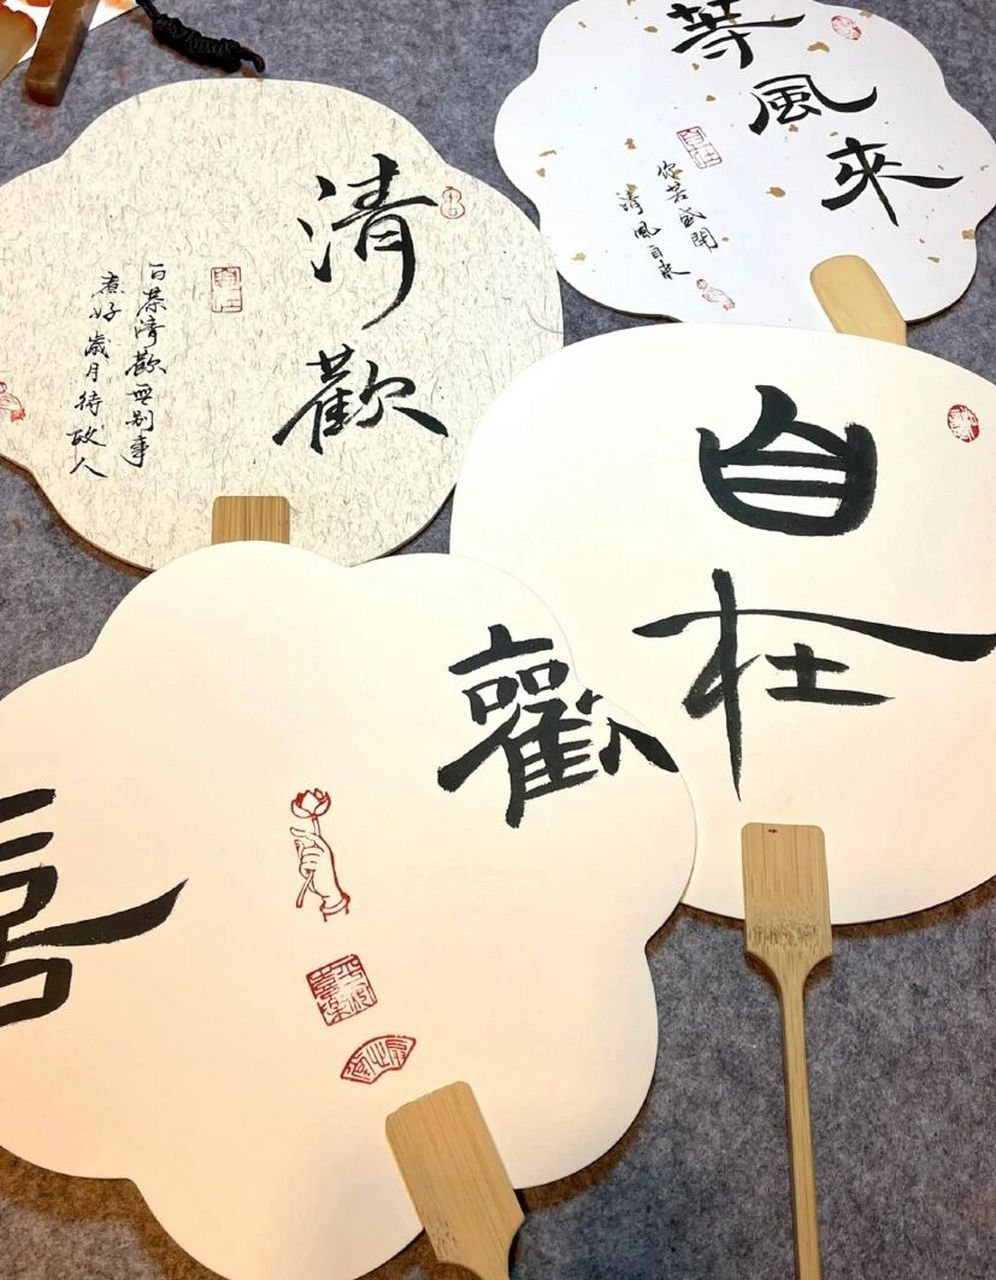 清歡
白茶清歡無别事
煮好歲月待故人
等風來
你若盛開
清風自來
自在
歡
喜